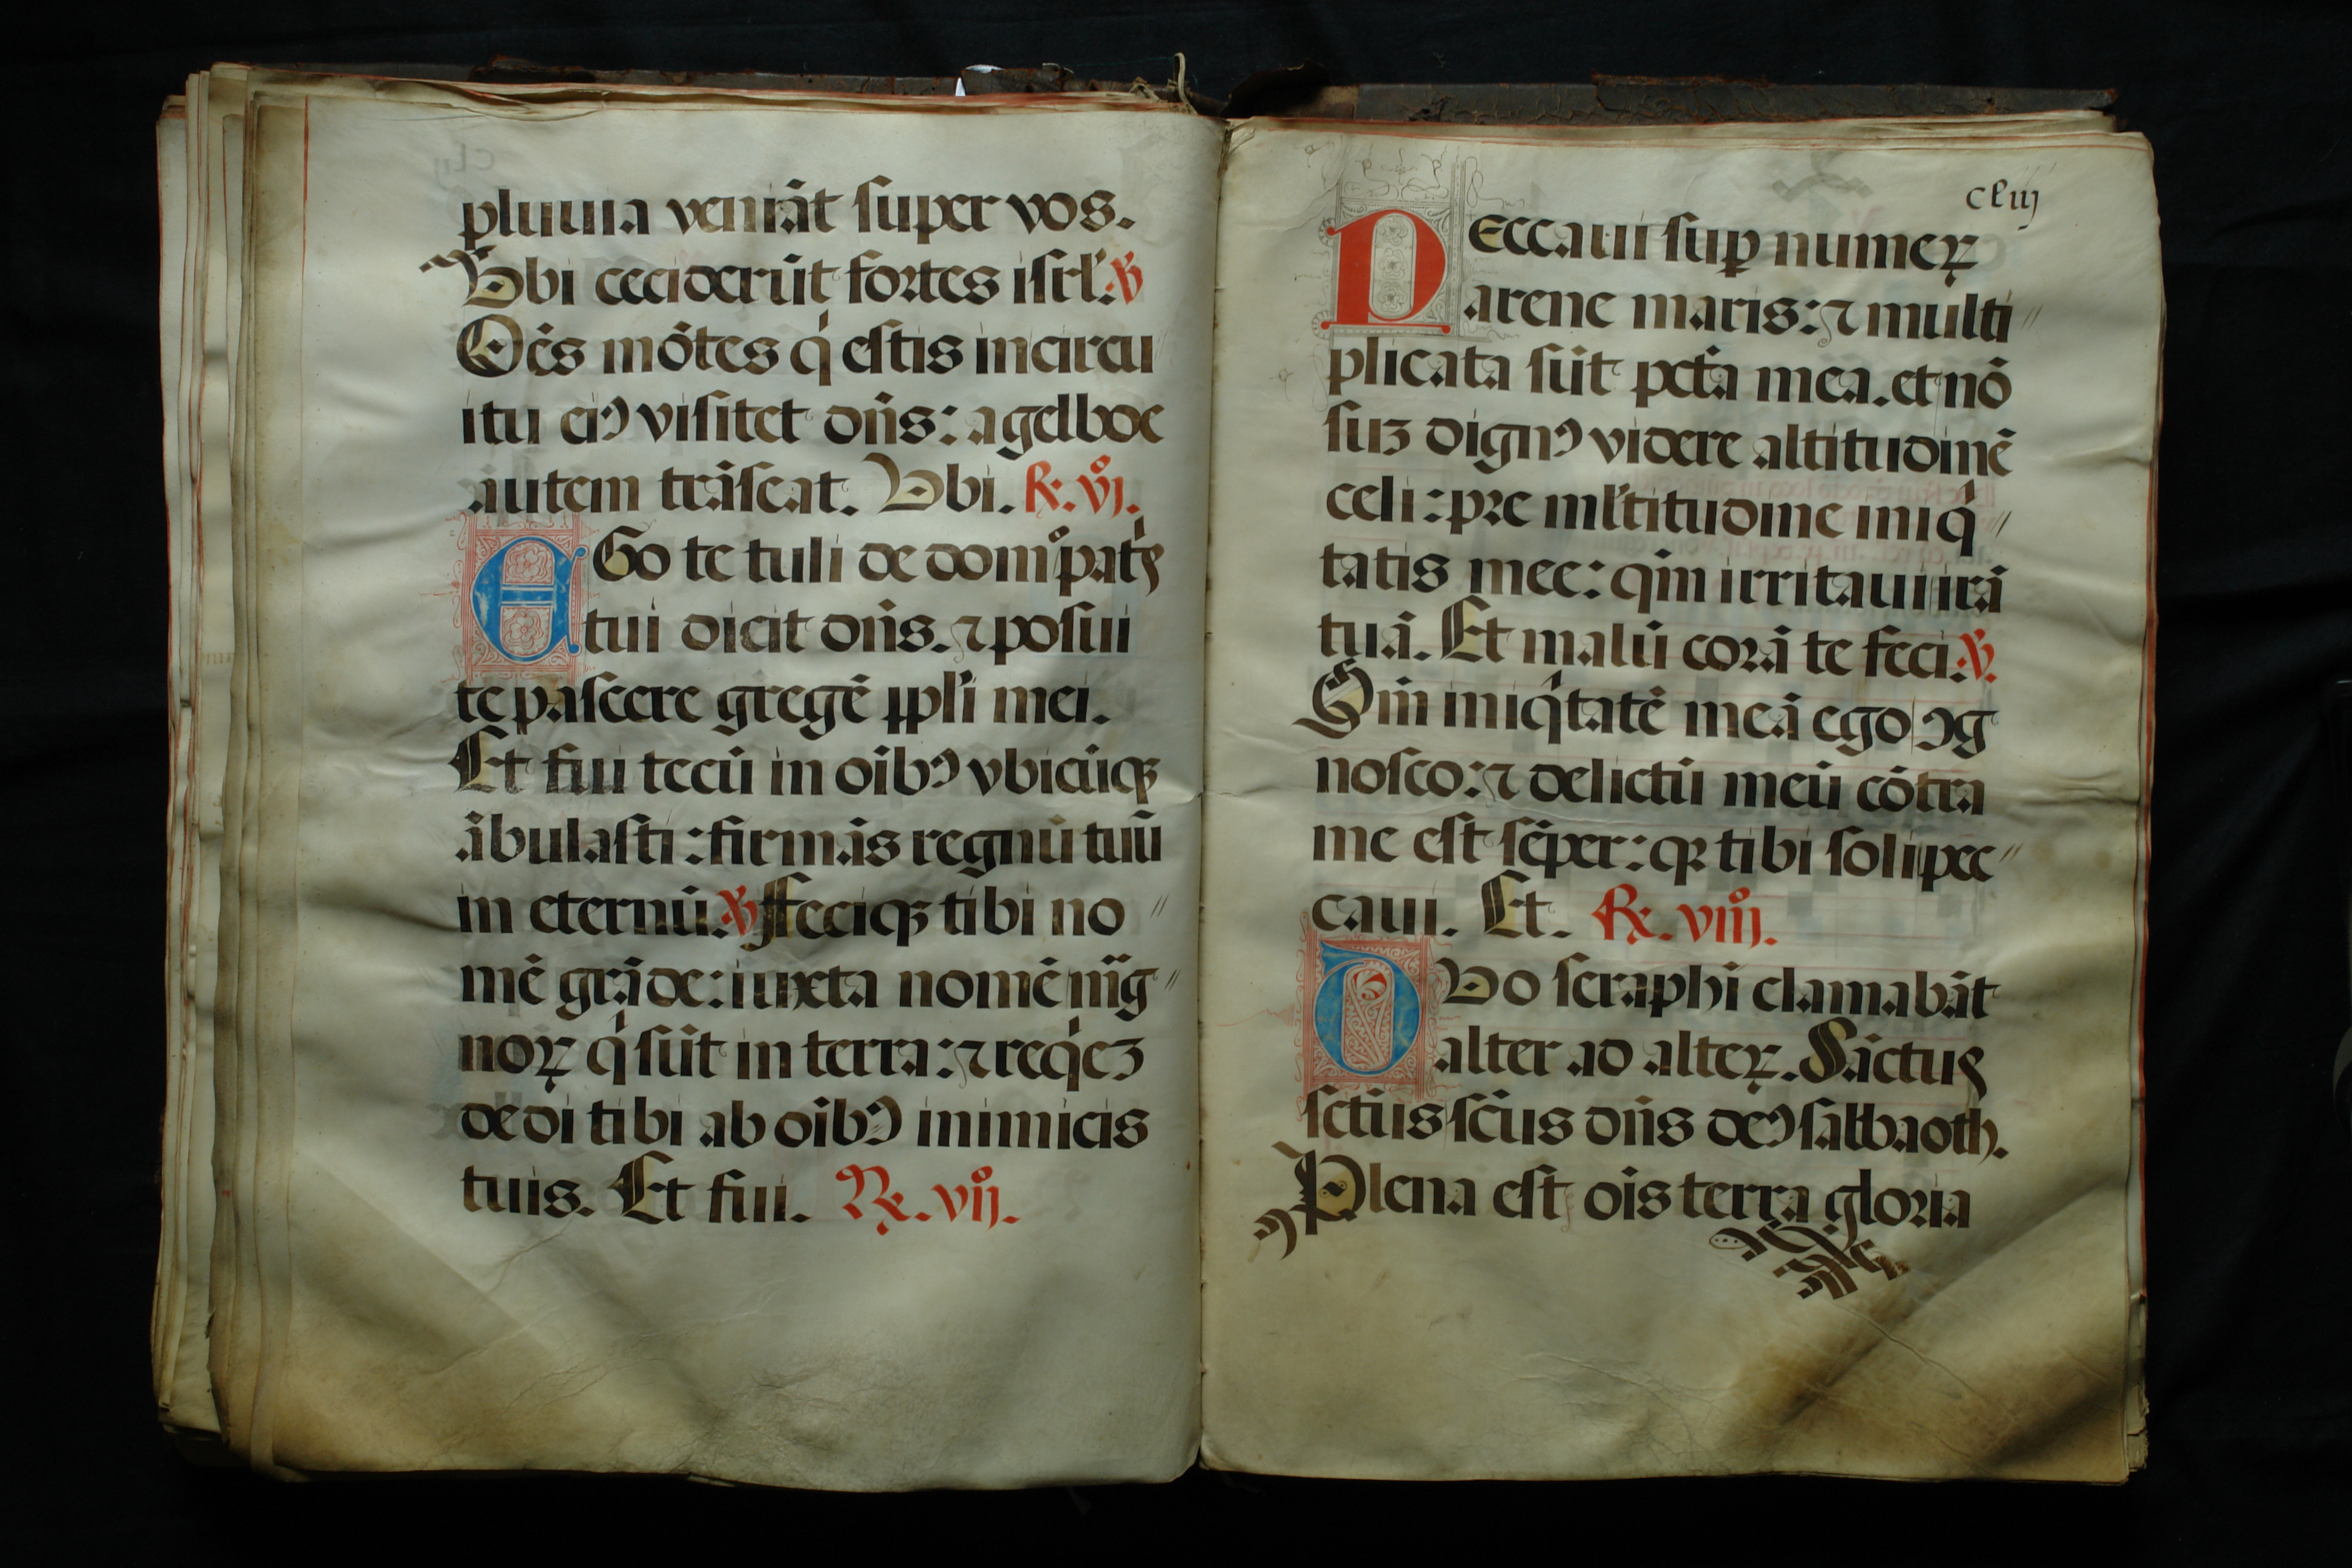 pluuia veniāt ſuper vos.
Vbi ceciderūt fortes iſrl'. ℣
Oēs mōtes q̇ eſtis in circu
itu eiꝰ viſitet dn̄s: a gelboe
autem trāſeat. Vbi. ℟. vjº.
EGo te tuli de domº patꝛ̇s
tui dicit dn̄s. ⁊ poſui
te paſcere gregē ppl'i mei.
Et fui tecū in oībꝰ vbicūqꝫ
ābulaſti: firmās regnū tuū
in eternū. ℣ Feciqꝫ tibi no〃
mē grāde: iuxta nomē mãg〃
noꝝ q̇ ſūt in terra: ⁊ req̇eꝫ
dedi tibi ab oībꝰ inimicis
tuis. Et fui. ℟. vijº.
cliij
PEccaui ſuꝑ numeꝝ
arene maris: ⁊ multi〃
plicata ſūt pctā mea. et nō
ſuꝫ dignꝰ videre altitudinē
celi: pre ml'titudine iniq̇〃
tatis mee: qm̄ irritaui irā
tuā. Et malū corā te feci. ℣.
Qm̄ iniq̇tatē meā ego ꝯg
noſco: ⁊ delictū meū cōtra
me eſt ſēper: qꝛ tibi ſoli pec〃
caui. Et. ℟. viijº.
DVo ſeraphi clamabāt
alter ad alteꝝ. Sāctus
ſctūs ſcūs dn̄s deꝰ ſabbaoth.
Plena eſt oīs terra gloria